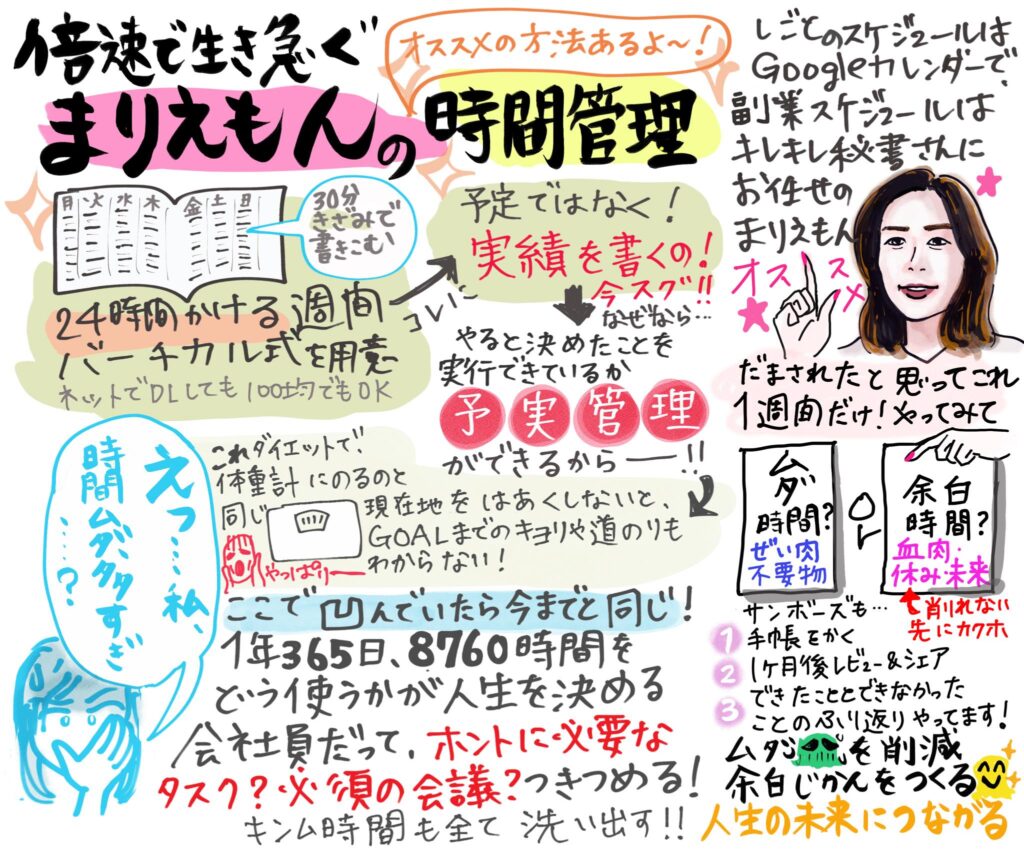 倍速で生き急ぐ
まりえもんの時間管理
オススメの方法あるよ〜!
月 火 水 木 金 土 日
30分
きざみで
書きこむ
24時間かける週間
バーチカル式を用意
ネットでDLしても100均でもOK
コレに
予定ではなく!
実績を書くの!
今スグ!!
なぜなら…
やると決めたことを
実行できているか
予実管理
ができるからー!!
これダイエットで、
体重計にのるのと
同じ
やっぱりー
現在地をはあくしないと、
GOALまでのキョリや道のりも
わからない!
えっ…私、
時間ムダタダすぎ
……?
ここで凹んでいたら今までと同じ!
1年365日、8760時間を
どう使うかが人生を決める
会社員だって、ホントに必要な
タスク?必須の会議?つきつめる!
キンム時間も全て洗い出す!!
しごとのスケジュールは
Googleカレンダーで、
副業スケジュールは
キレキレ秘書さんに
お任せの
まりえもん
オススメ
だまされたと思ってこれ
1週間だけ!やってみて
ムダ
時間?
ぜい肉
不要物
余白
時間?
血肉・
休み・未来
削れない
先にカクホ
サンボーズも…
1 手帳をかく
2 1ヶ月後レビュー&シェア
3 できたこととできなかった
ことのふり返りやってます!
ムダを削減
余白じかんをつくる
人生の未来につながる